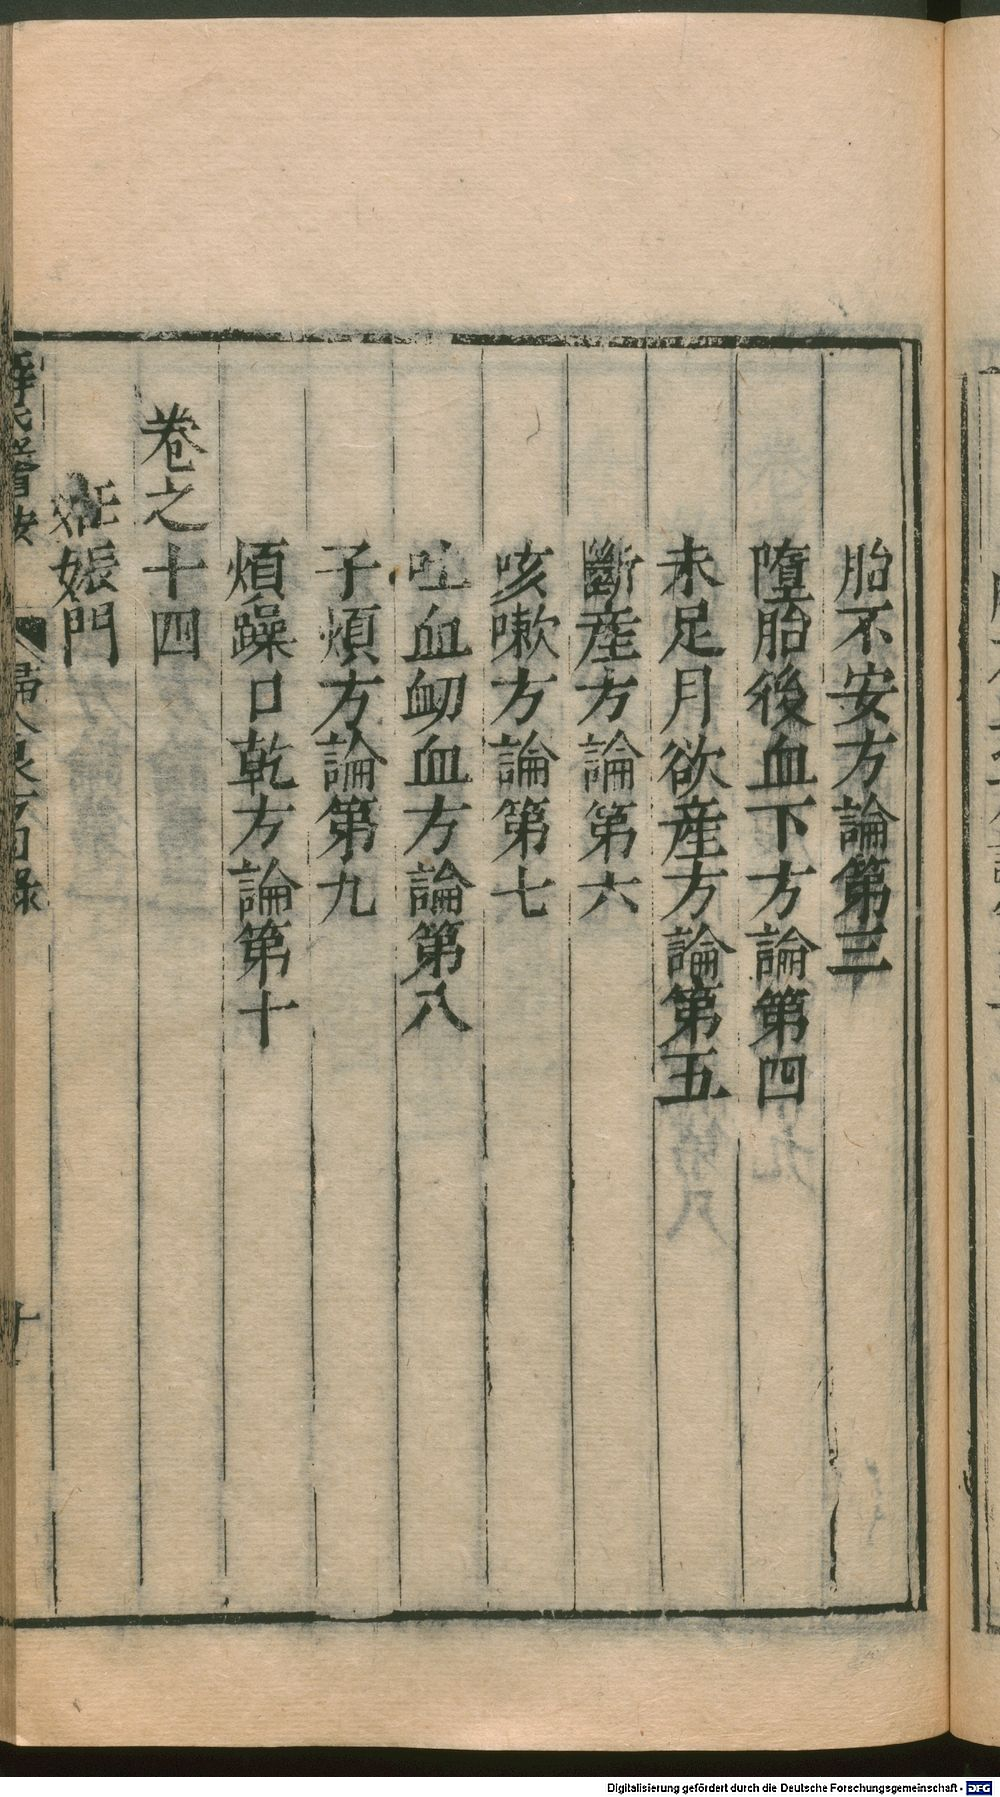 胎不安方論第三
墮胎後血下方論第四
未足月欲產方論第五
斷產方論第六
咳嗽方論第七
吐血衂血方論第八
子煩方論第九
煩躁口乾方論第十
卷之十四
妊娠門
薛氏醫按 婦人良方目錄 十
Digitalisierung gefördert durch die Deutsche Forschungsgemeinschaft - DFG